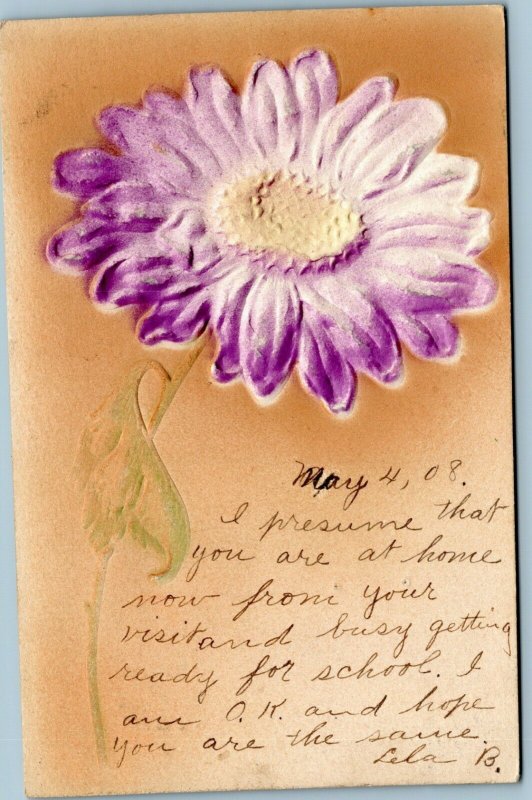 May 4, 08.
I presume that
you are at home
now from your
visit and busy getting
ready for school. I
am O.K. and hope
you are the same.
Lela B.